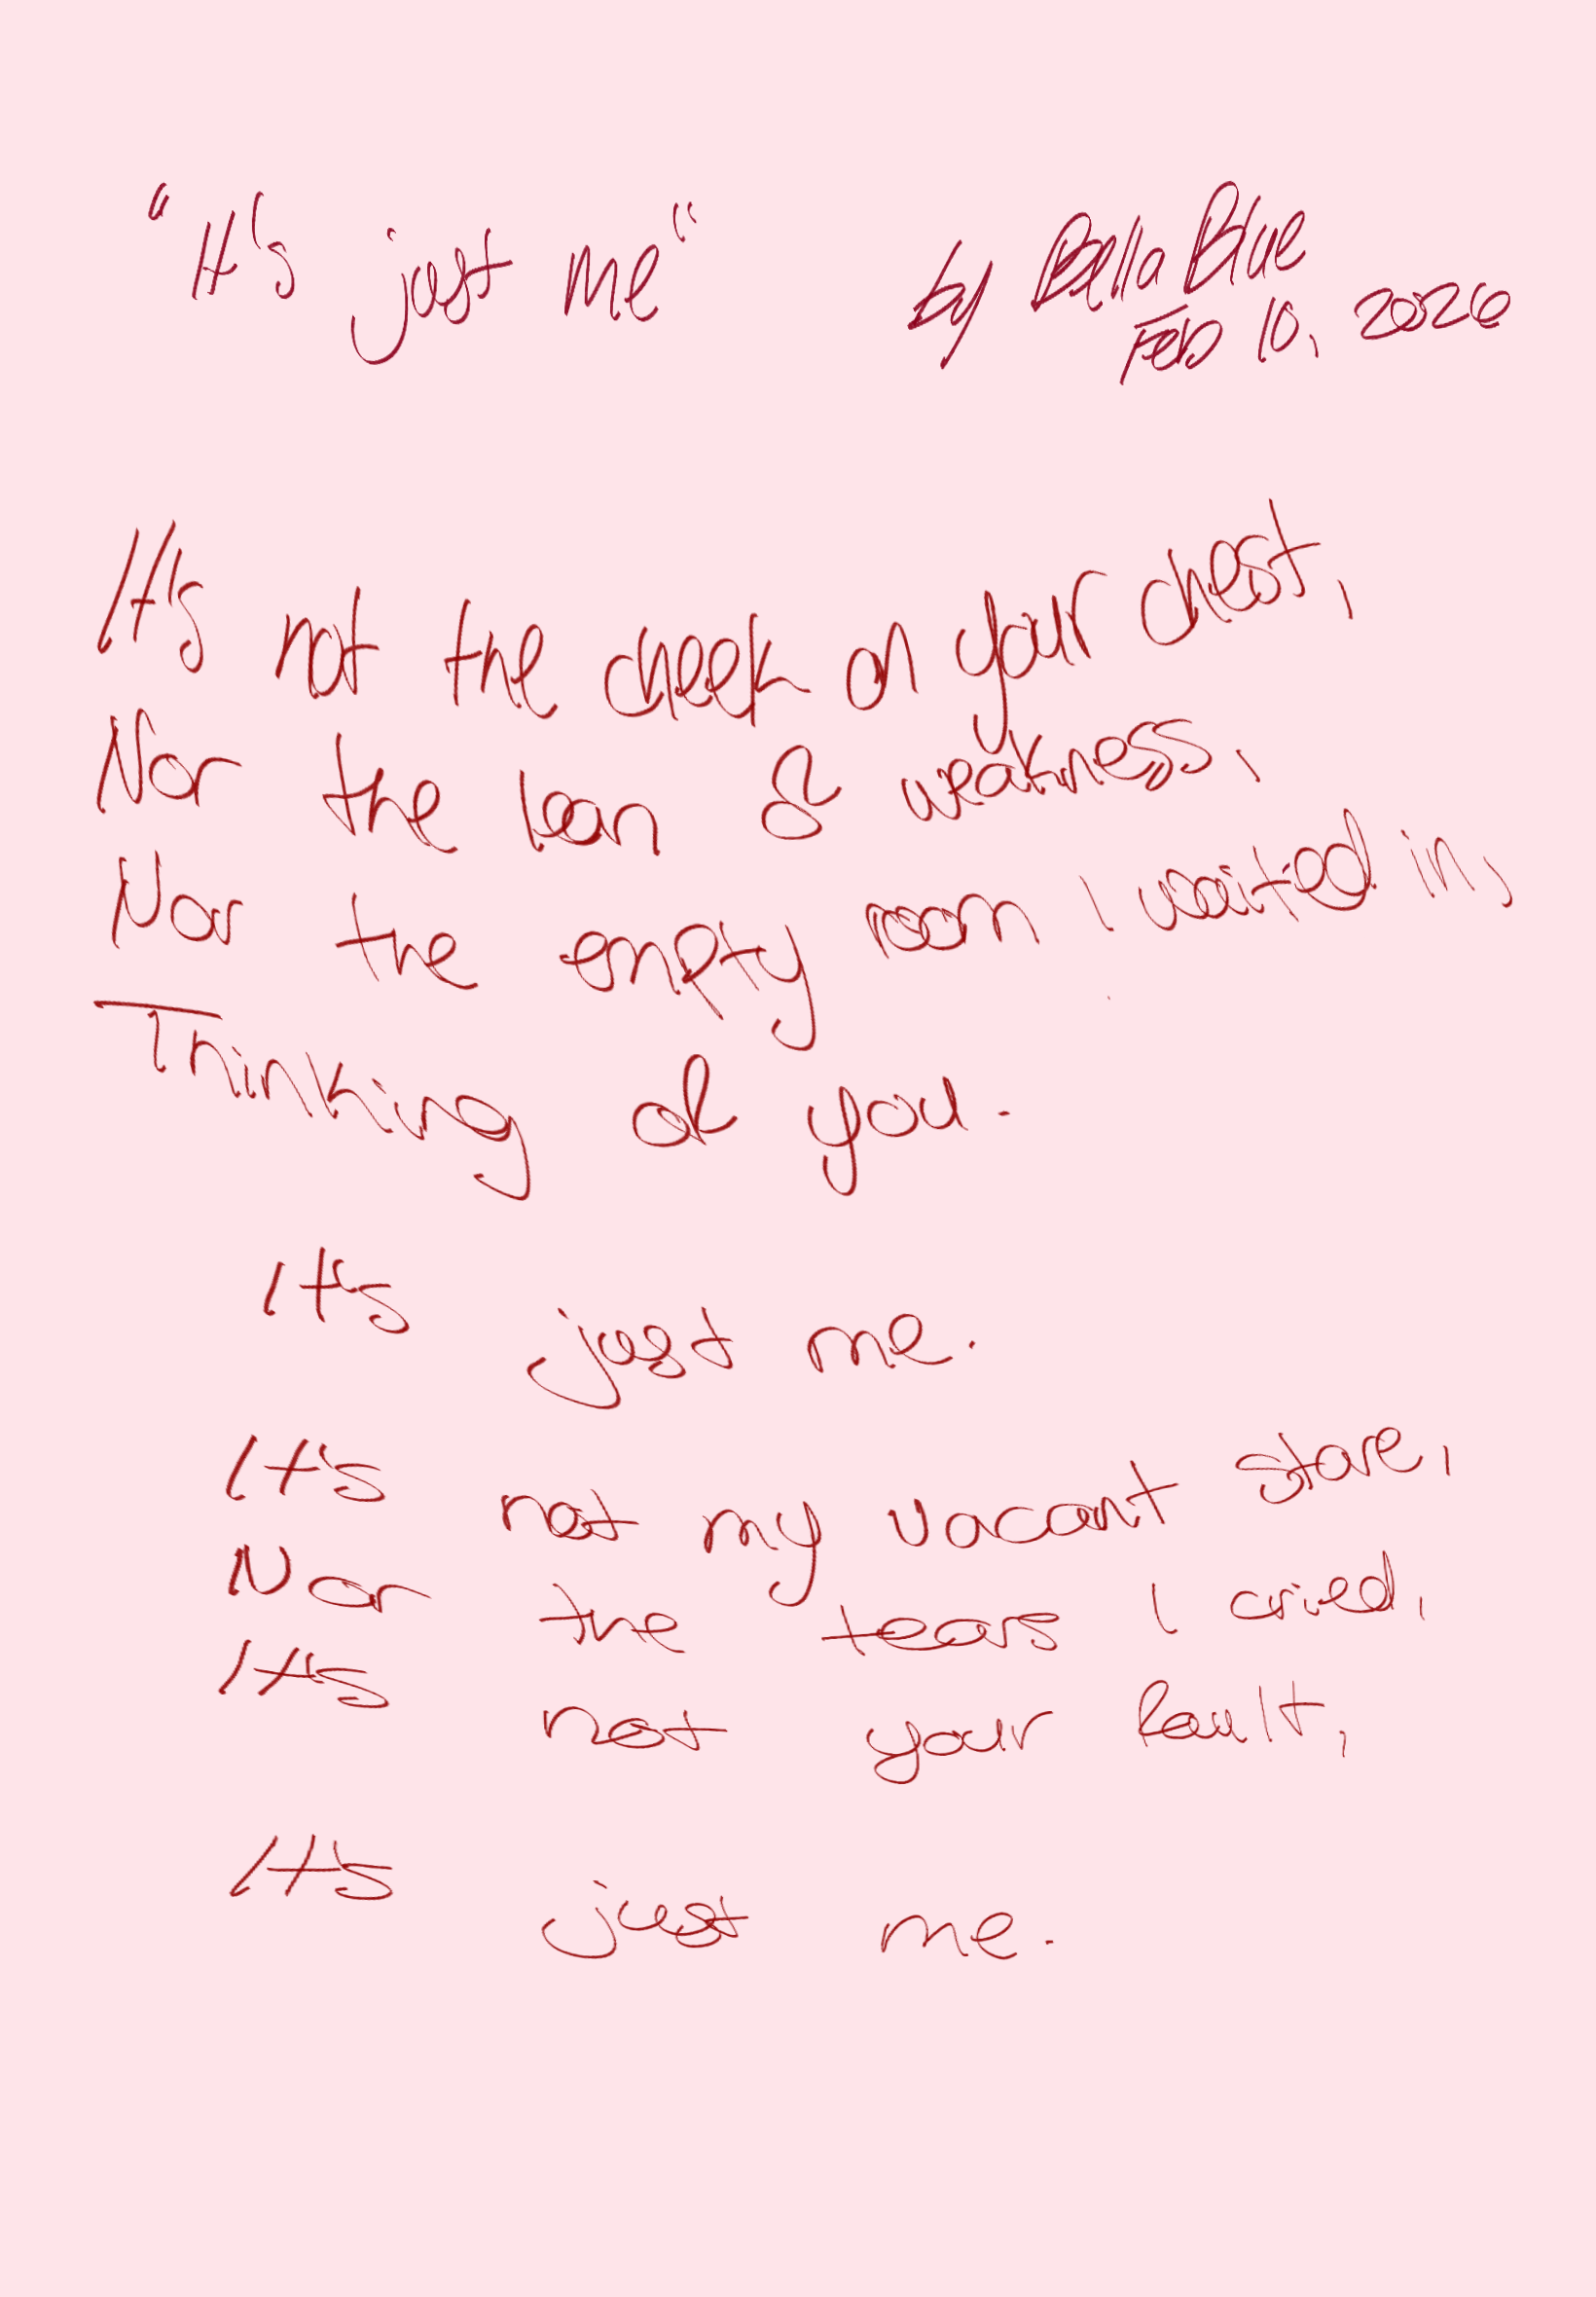 "It's just me"
by Bella Blue
Feb 10, 2026
It's not the cheek on your chest,
Nor the lean of weakness,
Nor the empty room I waited in,
Thinking of you.
It's just me.
It's not my vacant stare,
Nor the tears I cried,
It's not your fault,
It's just me.